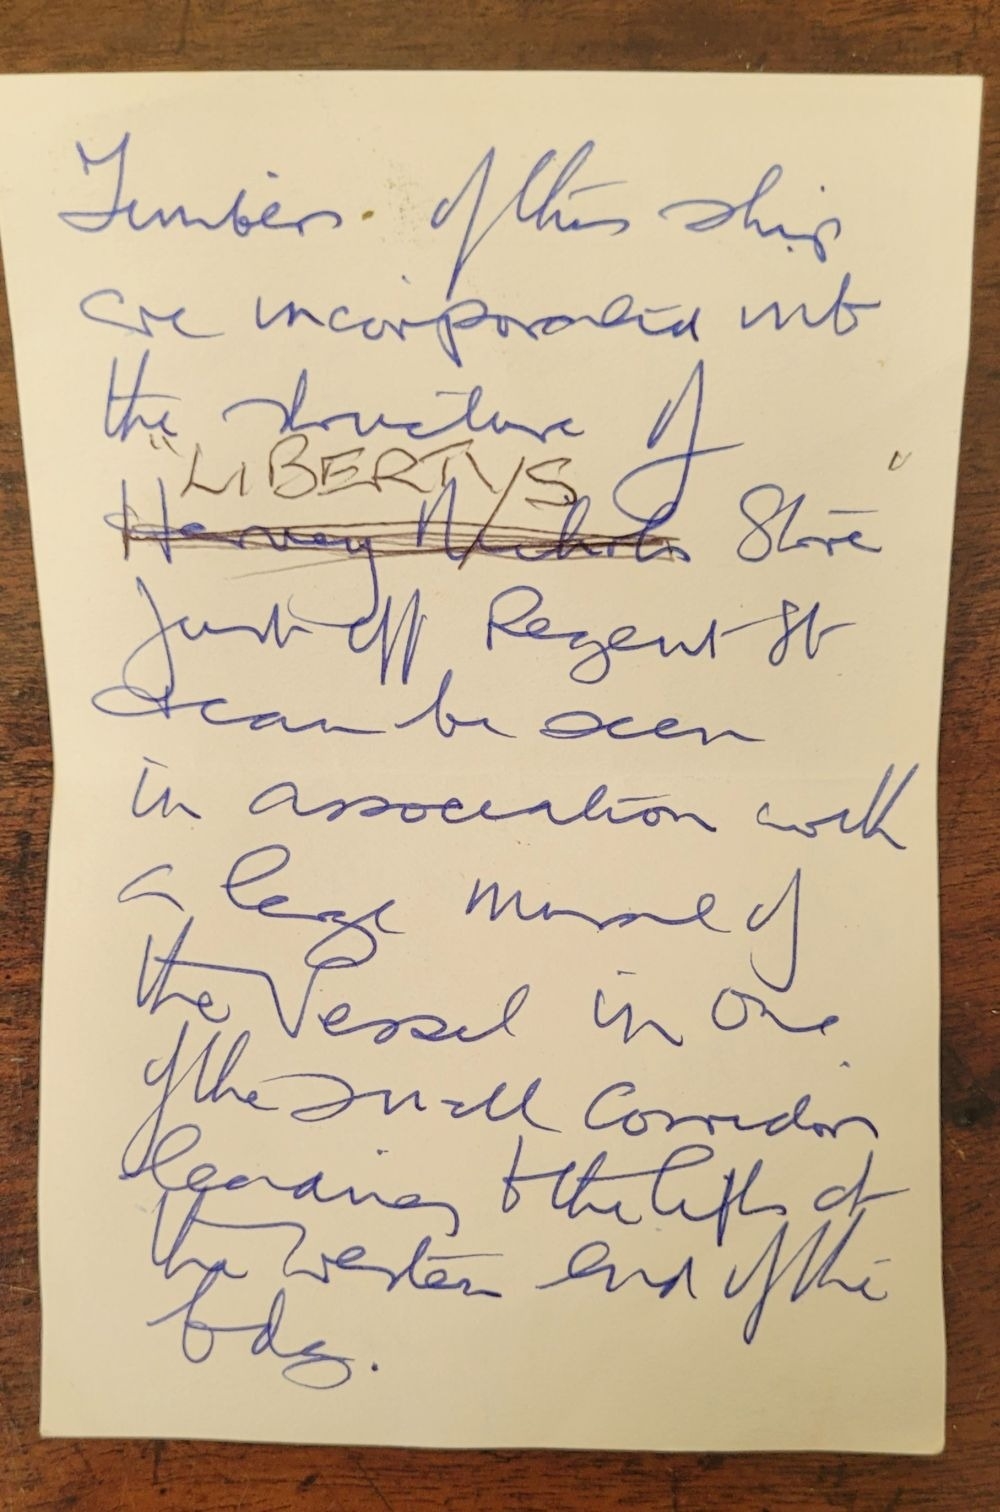 Timbers of this ship
are incorporated into
the structure of
"LIBERTY'S"
Harvey Nichols Store
just off Regent St
& can be seen
in association with
a large mural of
the Vessel in one
of the small corridors
leading to the lifts at
the western end of the
bdg.